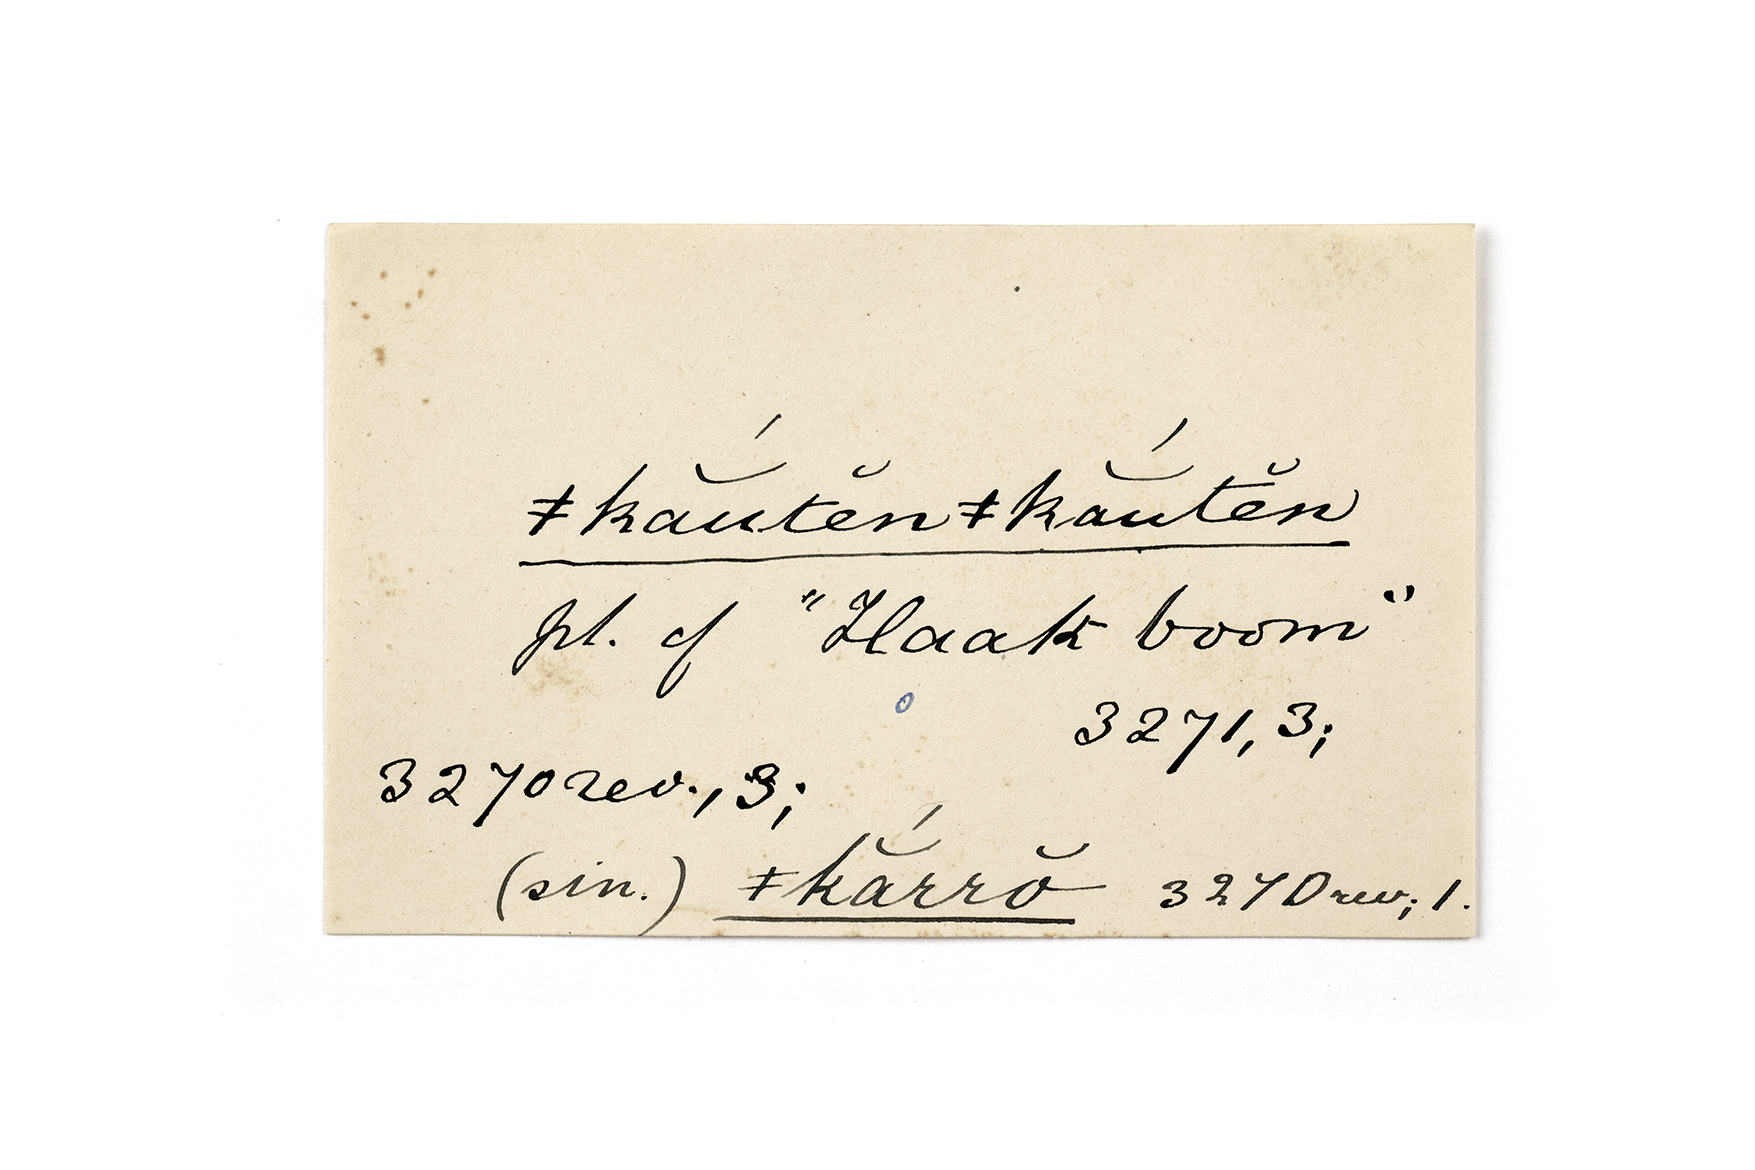 ǂkắutĕnǂkắutĕn
pl. of "Haak boom"
3271, 3;
3270 rev., 3;
(sin.) ǂkắrrŏ 3270 rev; 1.